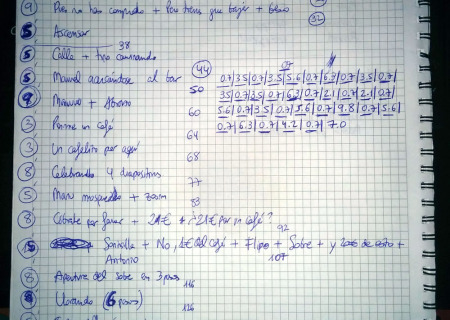 9 Pues no has comprado + Pero tienes que bajar +
32
5 Ascensor
38
5 Calle + tipo caminando
5 Manuel acercándose al bar
44
50
9 + Abierto
60
3 Ponme un café
64
3 Un cafelito por aquí
68
8 Celebrando 4 diapositivas
77
5 Mano + zoom
83
8 Cóbrate por favor + 21€ + ¿21€ por un café?
92
15 Sonrolla + No, 1€ del café + Flipo + Sobre + y 20€ de esto +
Antonio
107
8 Apertura del sobre en 3 pasos
116
8 Llorando (6 pasos)
126
0.7|3.5|0.7|3.5|5.6|0.7|6.3|0.7|3.5|0.7|
3.5|0.7|3.5|0.7|6.3|0.7|2.1|0.7|2.1|0.7|
5.6|0.7|3.5|0.7|5.6|0.7|9.8|0.7|5.6
0.7|6.3|0.7|4.2|0.7|7.0